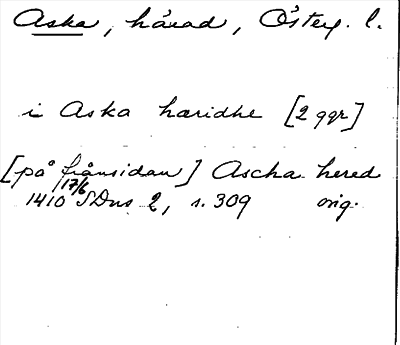 Aska, härad, Österg. l.
i Aska hæridhe [2 ggr]
[på frånsidan] Ascha hered
1410 17/6 SDns 2, s. 309 orig.